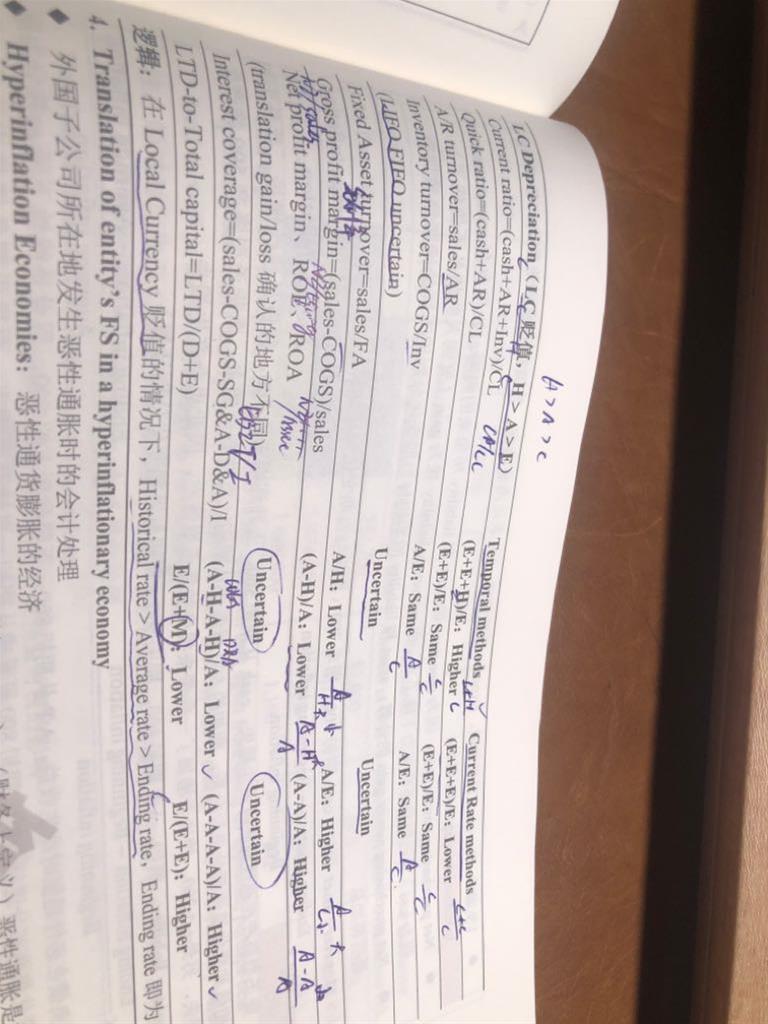 H > A > C
LC Depreciation (LC 贬值, H > A > E) Temporal methods Current Rate methods
Current ratio=(cash+AR+Inv)/CL (E+E+H)/E: Higher (E+E+E)/E: Lower
Quick ratio=(cash+AR)/CL (E+E)/E: Same (E+E)/E: Same
A/R turnover=sales/AR A/E: Same A/E: Same
Inventory turnover=COGS/Inv
(LIFO FIFO uncertain) Uncertain Uncertain
Fixed Asset turnover=sales/FA A/H: Lower A/E: Higher
Gross profit margin=(sales-COGS)/sales (A-H)/A: Lower (A-A)/A: Higher
Net profit margin、ROE、ROA
(translation gain/loss 确认的地方不同) Uncertain Uncertain
Interest coverage=(sales-COGS-SG&A-D&A)/I (A-H-A-H)/A: Lower (A-A-A-A)/A: Higher
LTD-to-Total capital=LTD/(D+E) E/(E+M): Lower E/(E+E): Higher
逻辑: 在 Local Currency 贬值的情况下, Historical rate > Average rate > Ending rate, Ending rate 即为
4. Translation of entity's FS in a hyperinflationary economy
◆ 外国子公司所在地发生恶性通胀时的会计处理
◆ Hyperinflation Economies: 恶性通货膨胀的经济
恶性通胀是